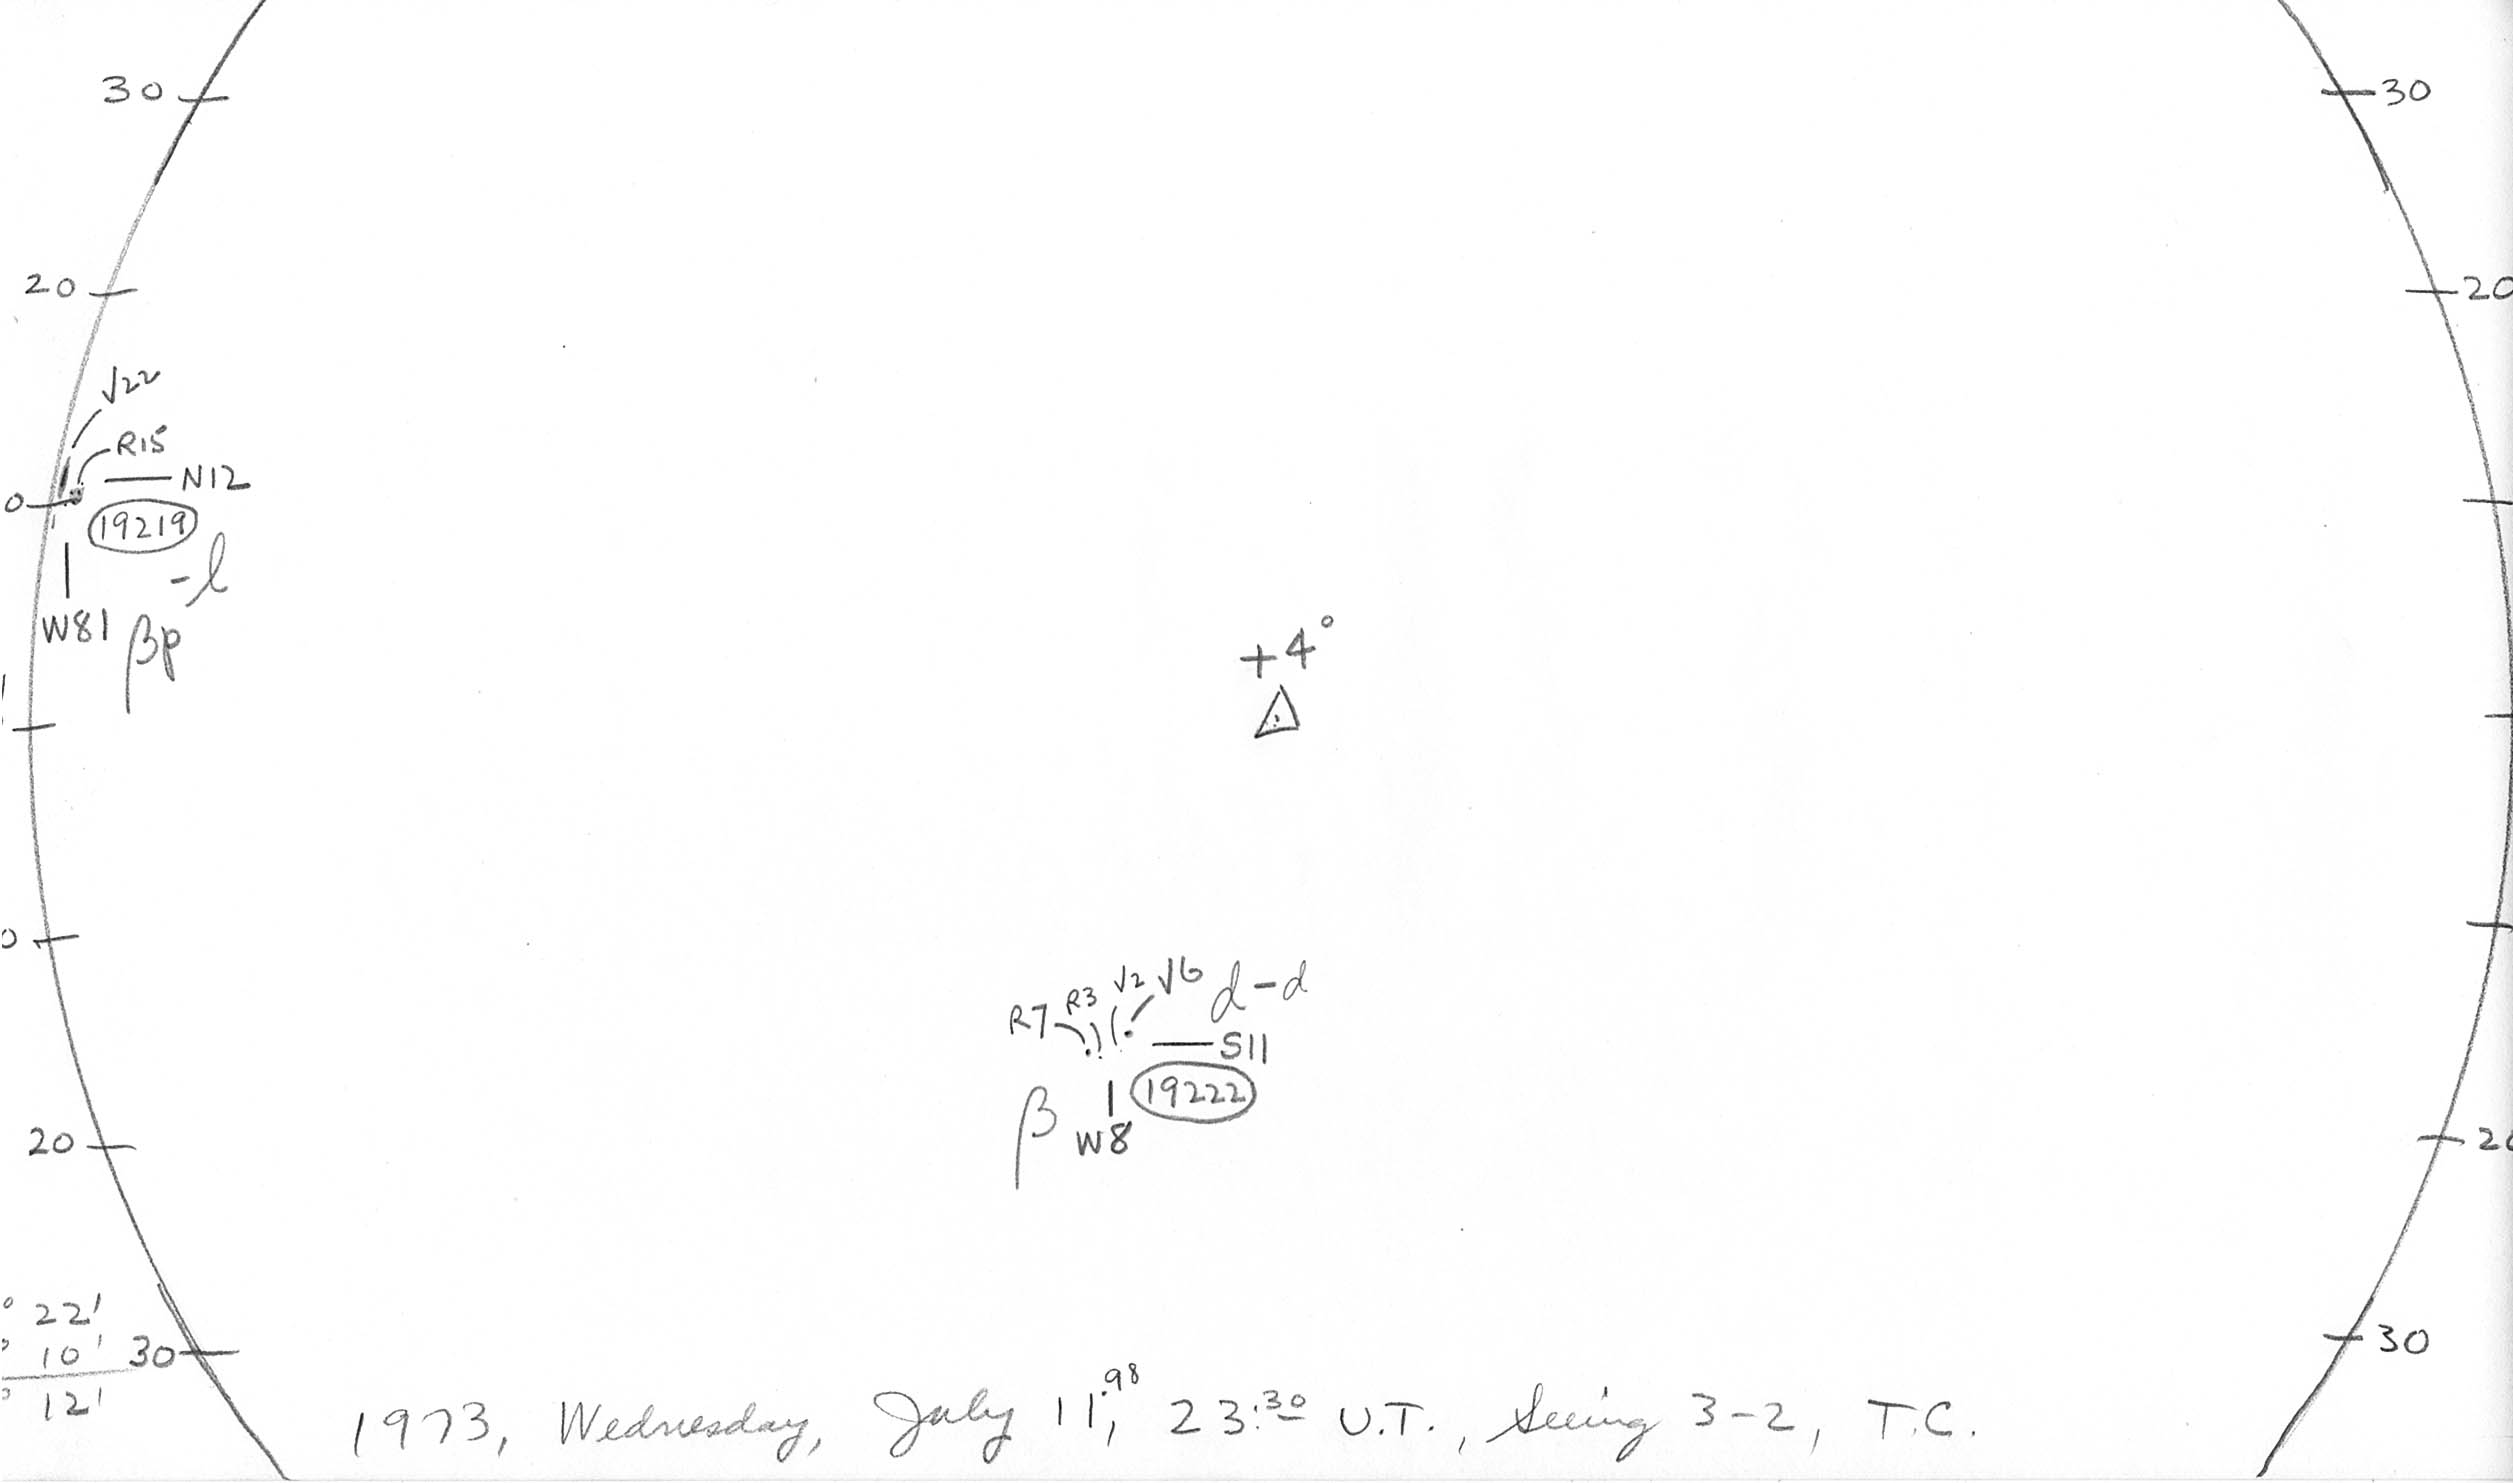 30
30
20
20
V22
R15
N12
0
19219
-l
W81
βp
+4°
0
R7 R3 V2 V6 d-d
S11
19222
β
W8
20
20
° 22'
° 10'
30
30
° 12'
1973, Wednesday, July 11,.98 23:30 U.T., Seeing 3-2, T.C.